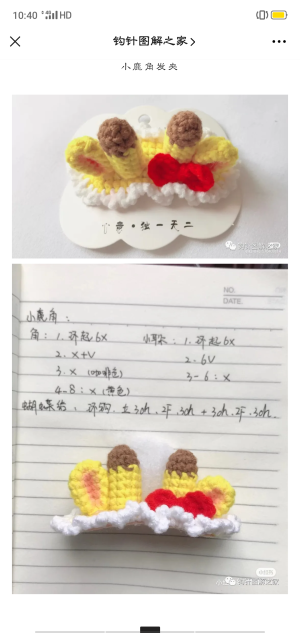 10:40 4G HD
钩针图解之家
小鹿角发夹
钩针图解之家
NO.
DATE.
小鹿角:
角:1.环起6x 小耳朵:1.环起6x
2.x+V 2.6V
3.x(咖啡色) 3-6:x
4-8:x(黄色)
蝴蝶结:环钩.立3ch.2F.3ch+3ch.2F.3ch.
钩针图解之家